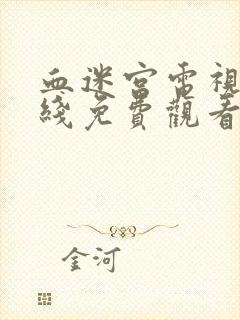 血迷宮電視
綫免費觀看
金河